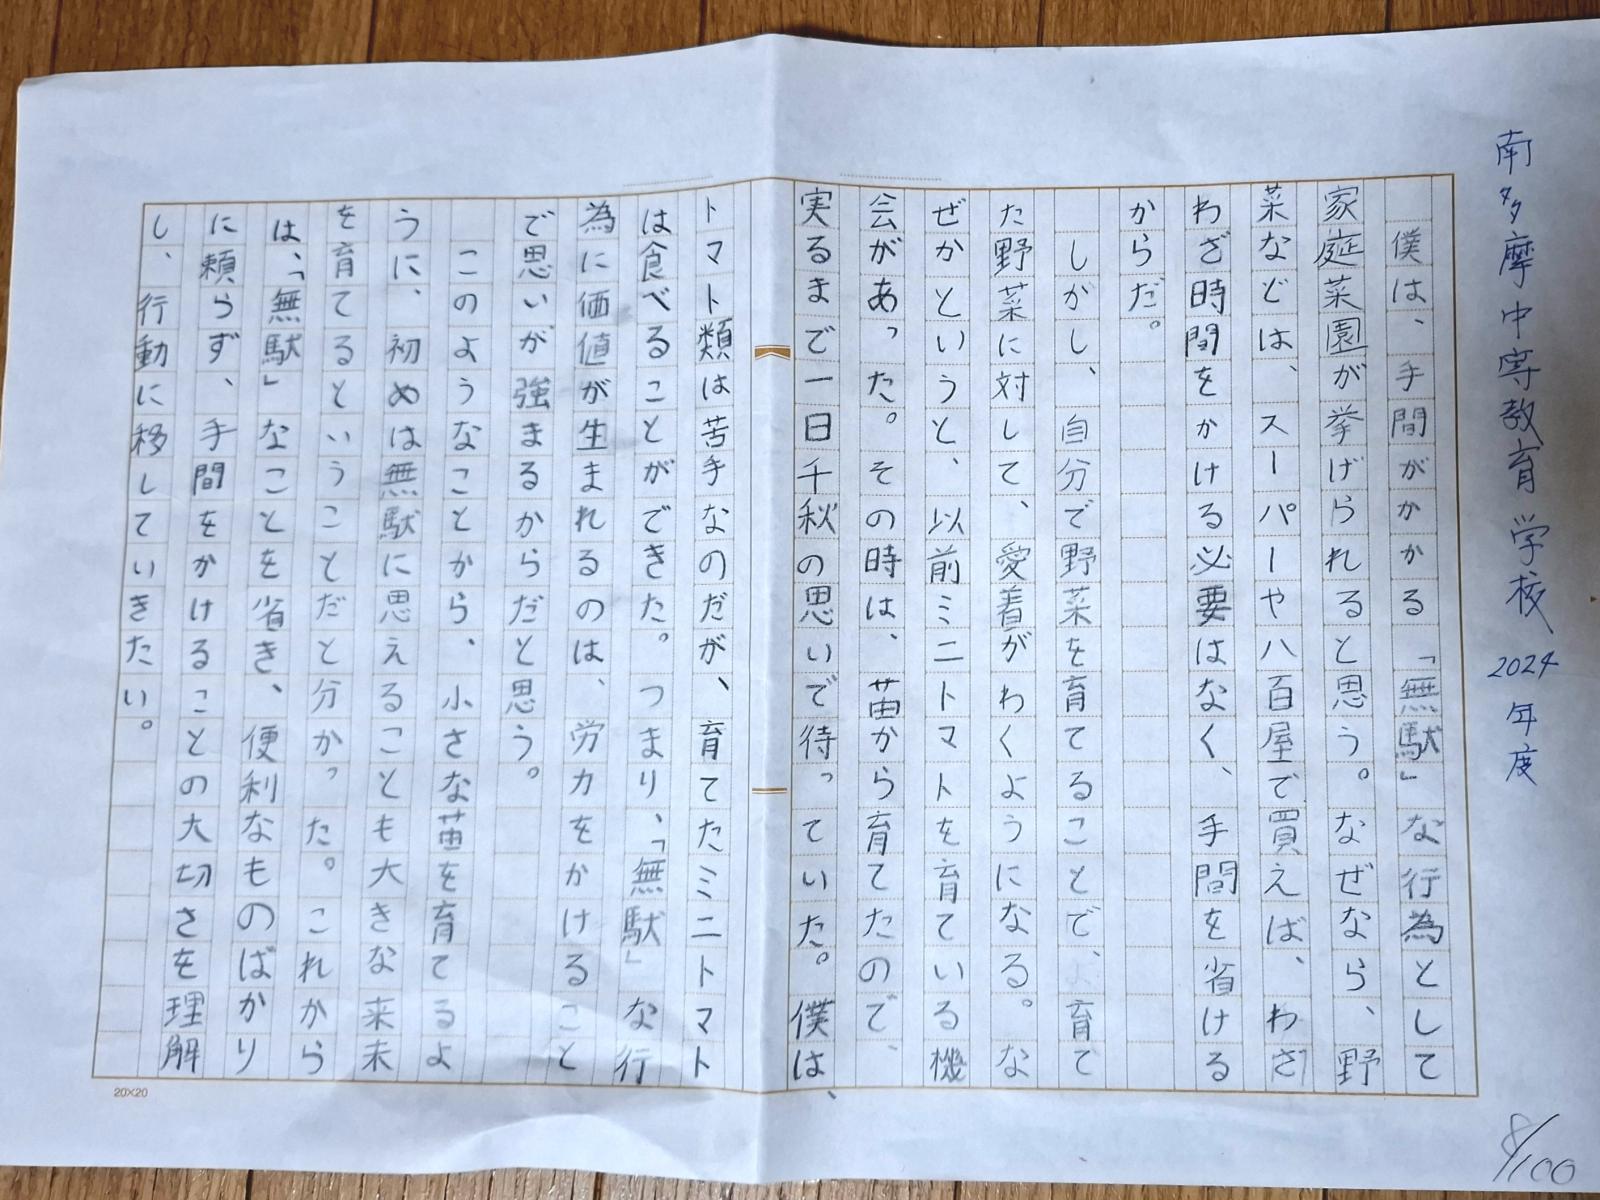 南多摩中等教育学校 2024年度
僕は、手間がかかる「無駄」な行為として
家庭菜園が挙げられると思う。なぜなら、野
菜などは、スーパーや八百屋で買えば、わざ
わざ時間をかける必要はなく、手間を省ける
からだ。
しがし、自分で野菜を育てることで、育て
た野菜に対して、愛着がわくようになる。な
ぜかというと、以前ミニトマトを育ている機
会があった。その時は、苗から育てたので、
実るまで一日千秋の思いで待っていた。僕は、
トマト類は苦手なのだが、育てたミニトマト
は食べることができた。つまり、「無駄」な行
為に価値が生まれるのは、労力をかけること
で思いが強まるからだと思う。
このようなことから、小さな苗を育てるよ
うに、初めは無駄に思えることも大きな来未
を育てるということだと分かった。これから
は、「無駄」なことを省き、便利なものばかり
に頼らず、手間をかけることの大切さを理解
し、行動に移していきたい。
20×20
8/100